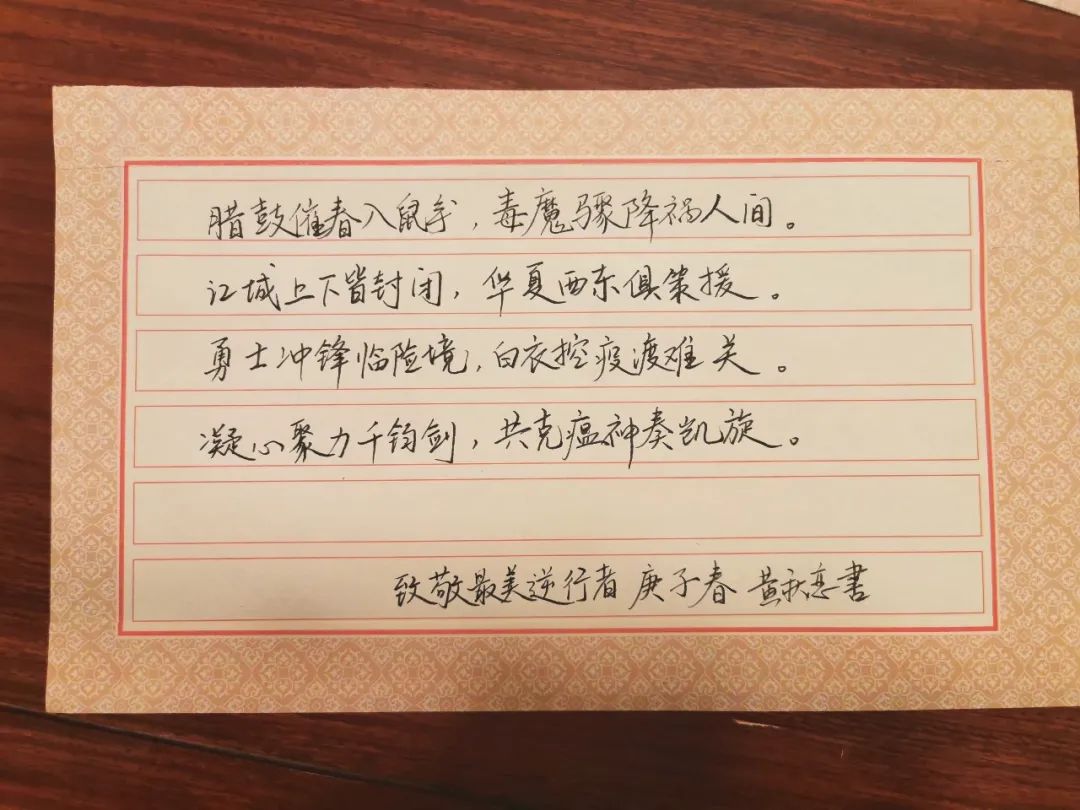 腊鼓催春入鼠年，毒魔骤降祸人间。
江城上下皆封闭，华夏西东俱策援。
勇士冲锋临险境，白衣控疫渡难关。
凝心聚力千钧剑，共克瘟神奏凯旋。
致敬最美逆行者 庚子春 黄秋恋書